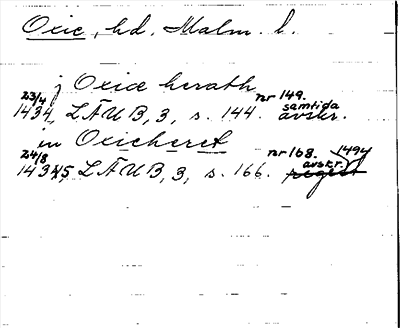 Oxie, hd. Malm. l.
j Oxiæ herath
23/4 1434, LÄUB, 3, s. 144. nr 149. samtida avskr.
in Oxieheret
24/8 1435, LÄUB, 3, s. 166. nr 168. avskr. 1494 regest